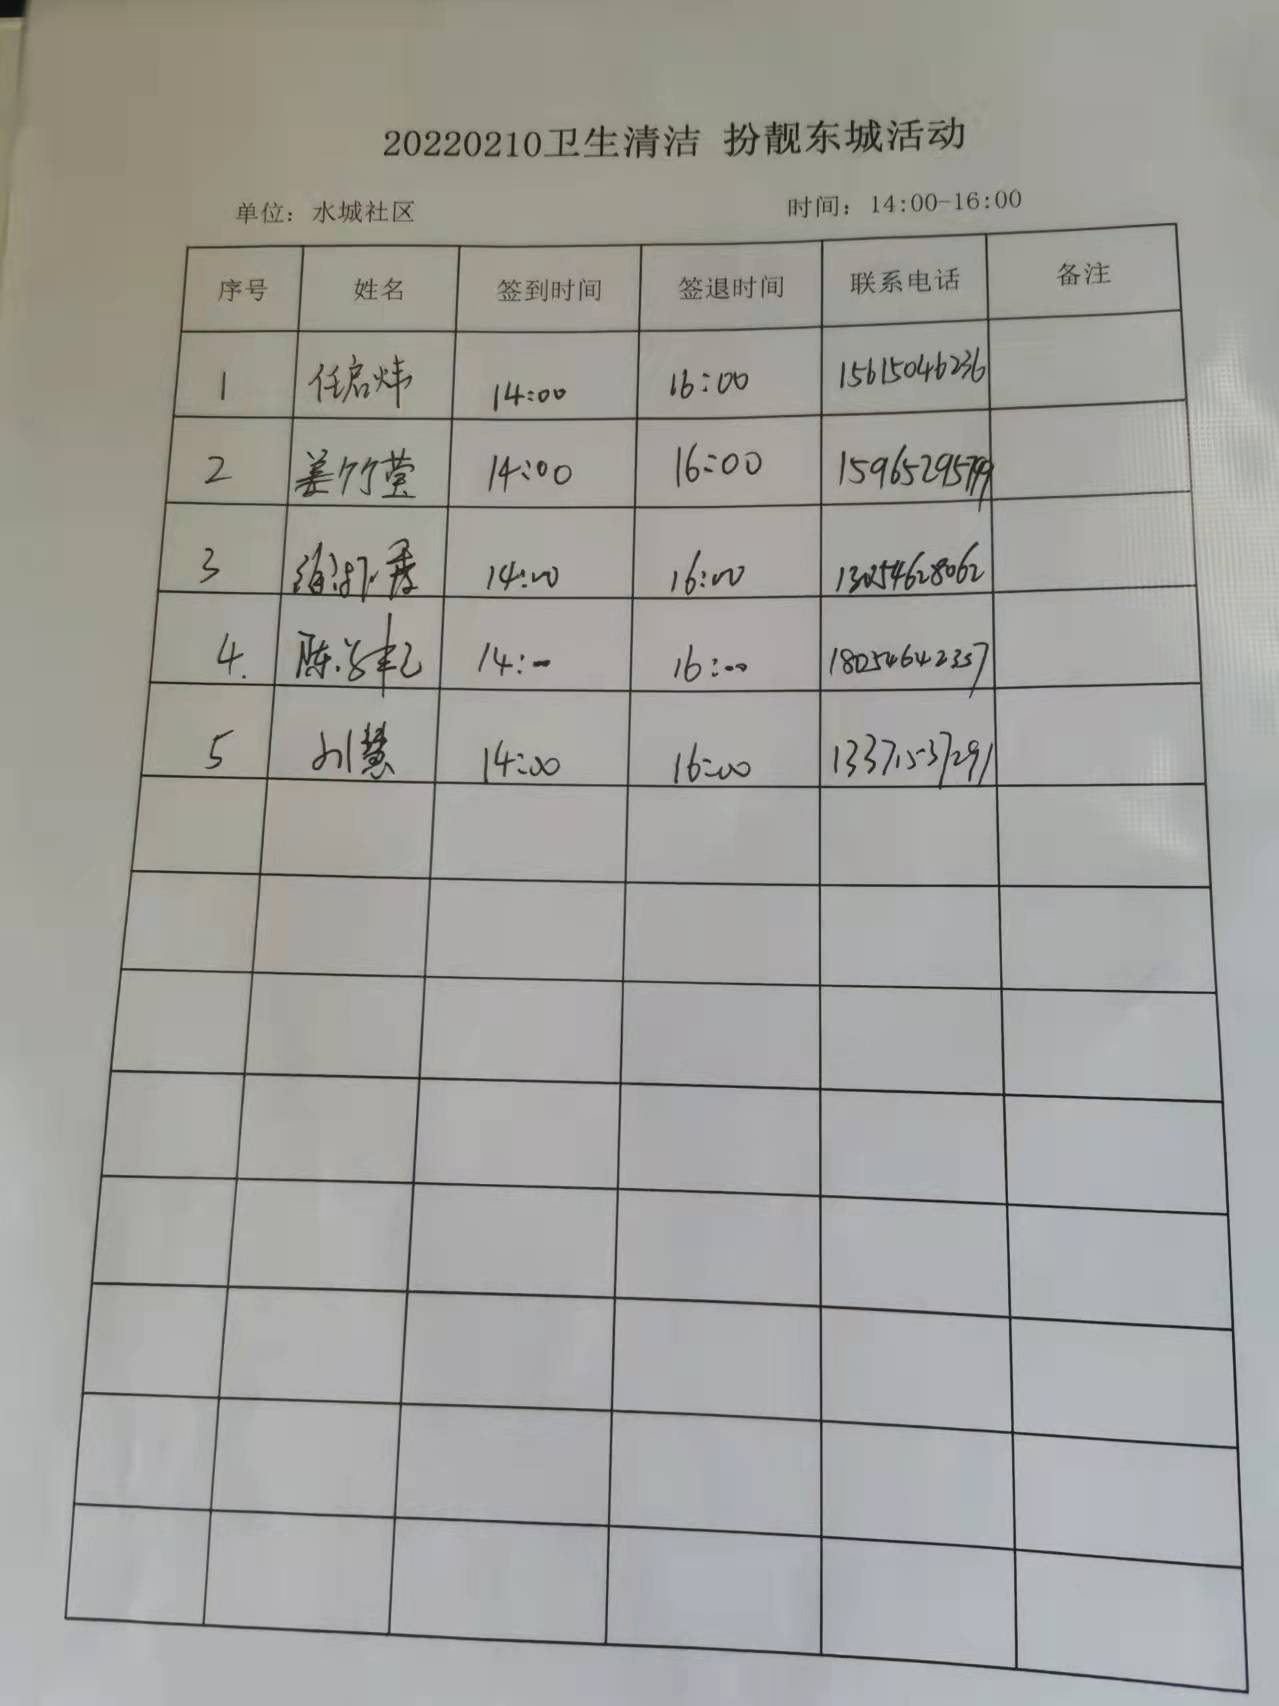 20220210卫生清洁 扮靓东城活动
单位：水城社区 时间：14:00-16:00
序号 姓名 签到时间 签退时间 联系电话 备注
1 任启炜 14:00 16:00 15615046236
2 姜竹萱 14:00 16:00
3 14:00 16:00 13054628062
4. 陈 14:00 16:00 18054642337
5 刘慧 14:00 16:00 13371537291